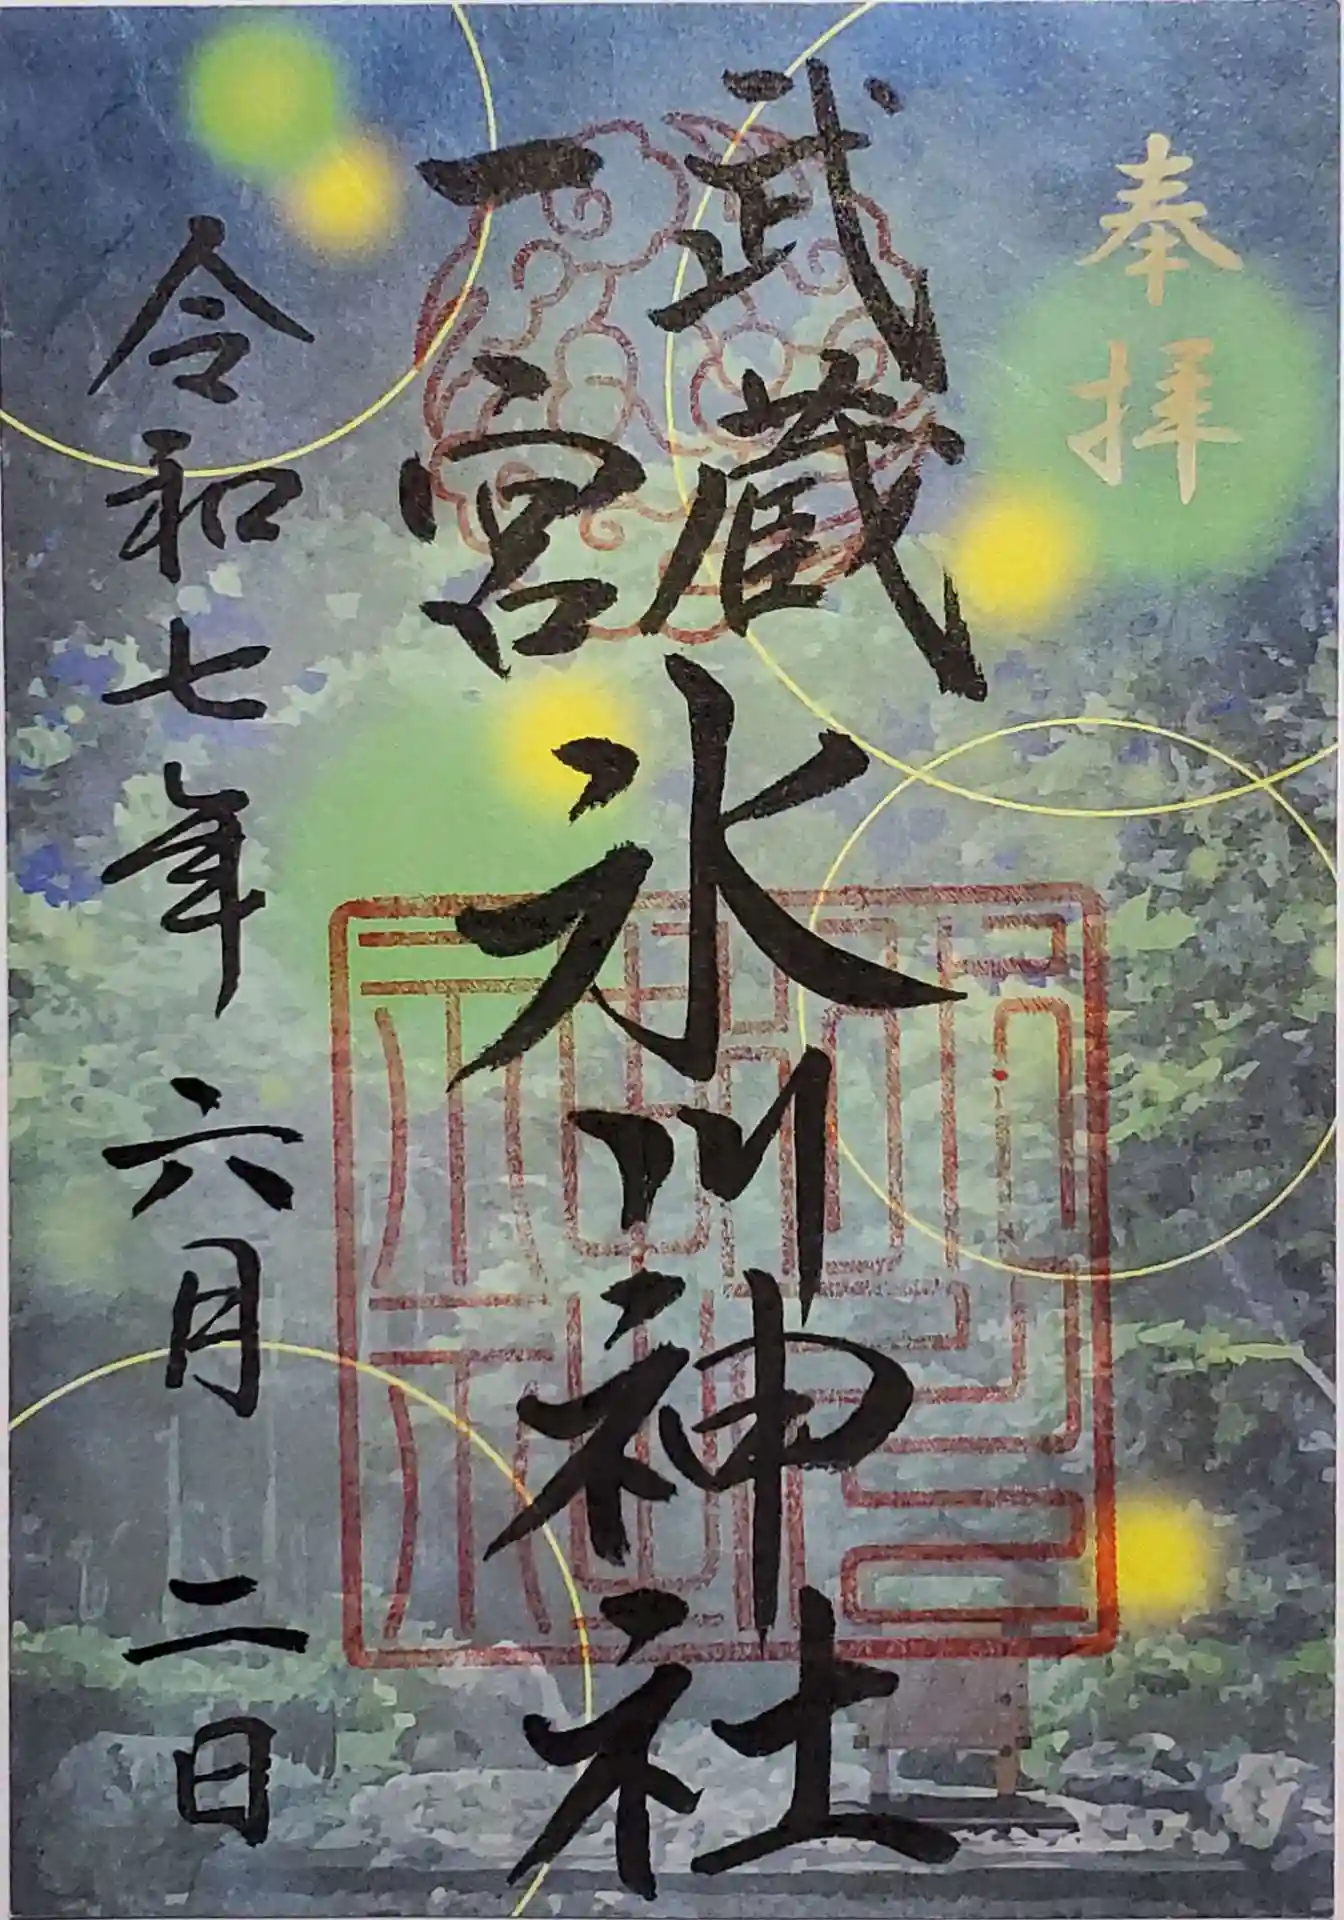 奉拝
武蔵
一宮
氷川神社
令和七年六月二日